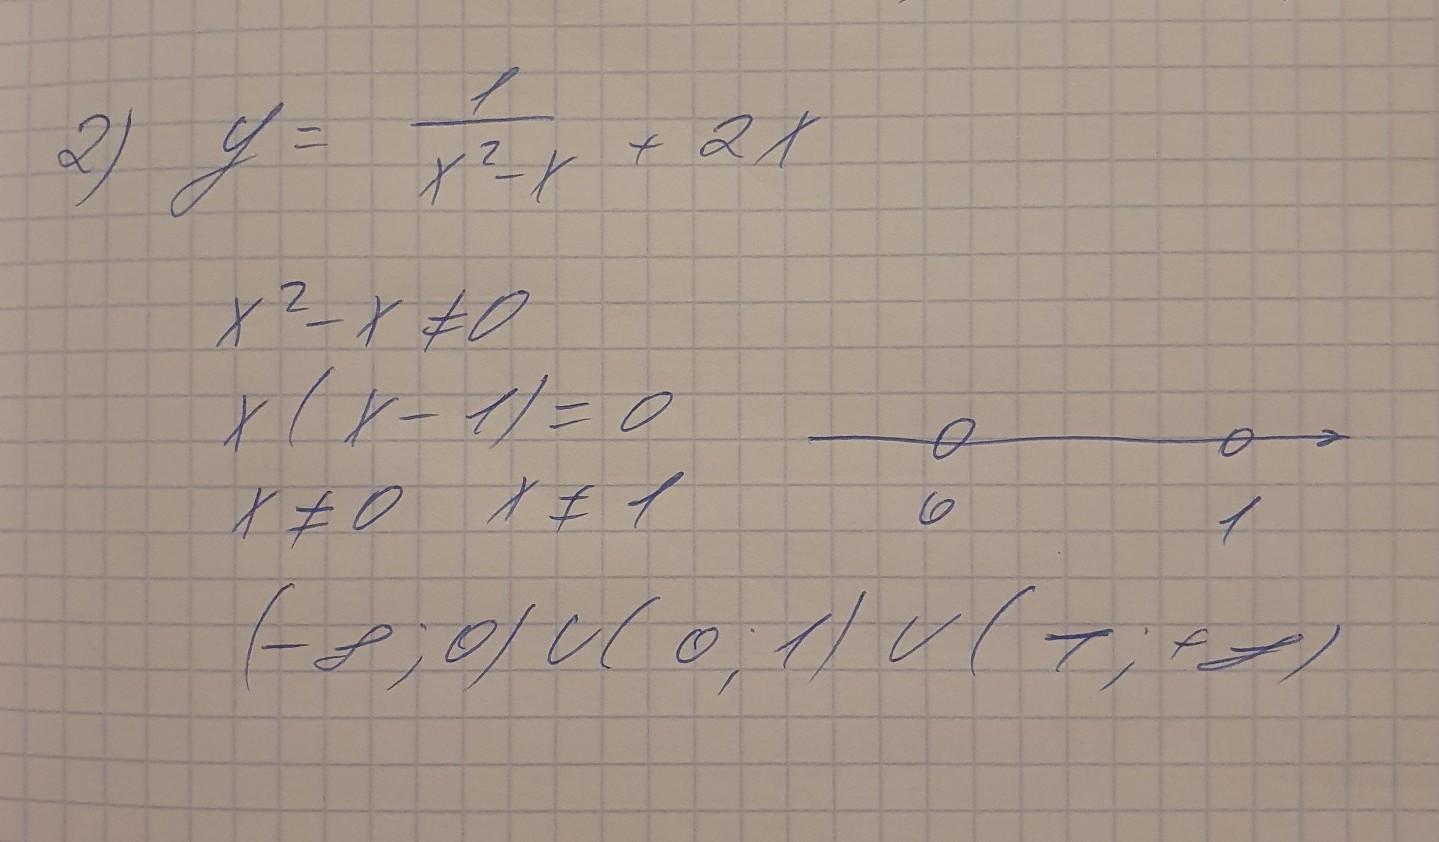 2) y = 1/(x²-x) + 2x
x² - x ≠ 0
x(x - 1) = 0
x ≠ 0 x ≠ 1
0 1
(-∞; 0) ∪ (0; 1) ∪ (1; +∞)